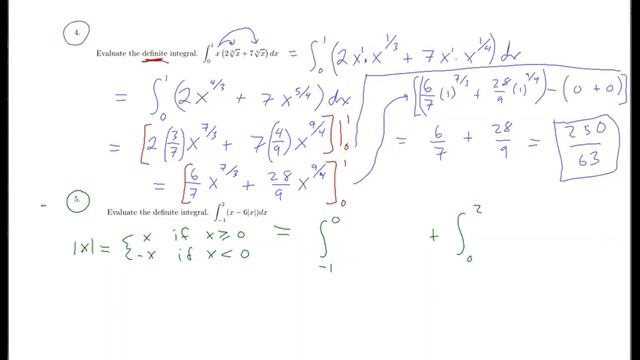 4.
Evaluate the definite integral. ∫₀¹ x(2∛x + 7∜x) dx = ∫₀¹ (2x¹·x^{1/3} + 7x¹·x^{1/4}) dx
= ∫₀¹ (2x^{4/3} + 7x^{5/4}) dx
[6/7 (1)^{7/3} + 28/9 (1)^{9/4}] − (0 + 0)]
= [2(3/7) x^{7/3} + 7(4/9) x^{9/4}]|₀¹
= 6/7 + 28/9 = 250/63
= [6/7 x^{7/3} + 28/9 x^{9/4}]₀¹
5.
Evaluate the definite integral. ∫₋₁² (x − 6|x|)dx
|x| = { x if x ≥ 0
{ -x if x < 0
= ∫₋₁⁰ + ∫₀²